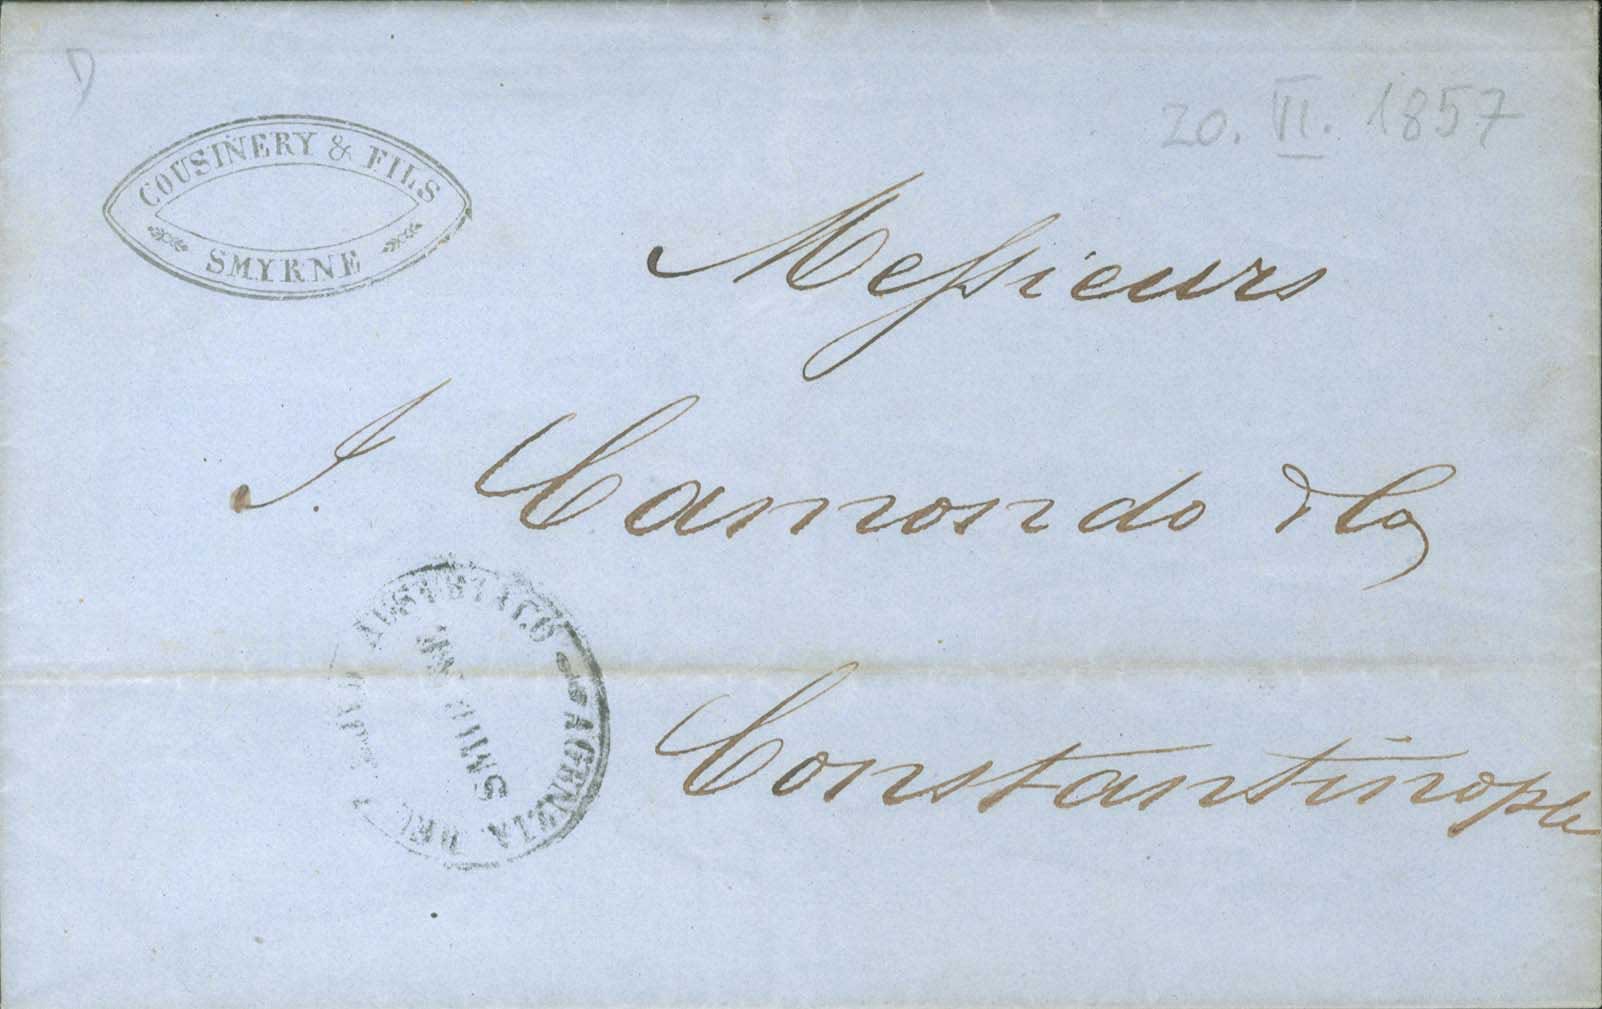 D
20. VII. 1857
COUSINERY & FILS
SMYRNE
Messieurs
I. Camondo & Co
AGENZIA DEL AUSTRIACO
SMIRNE
Constantinople